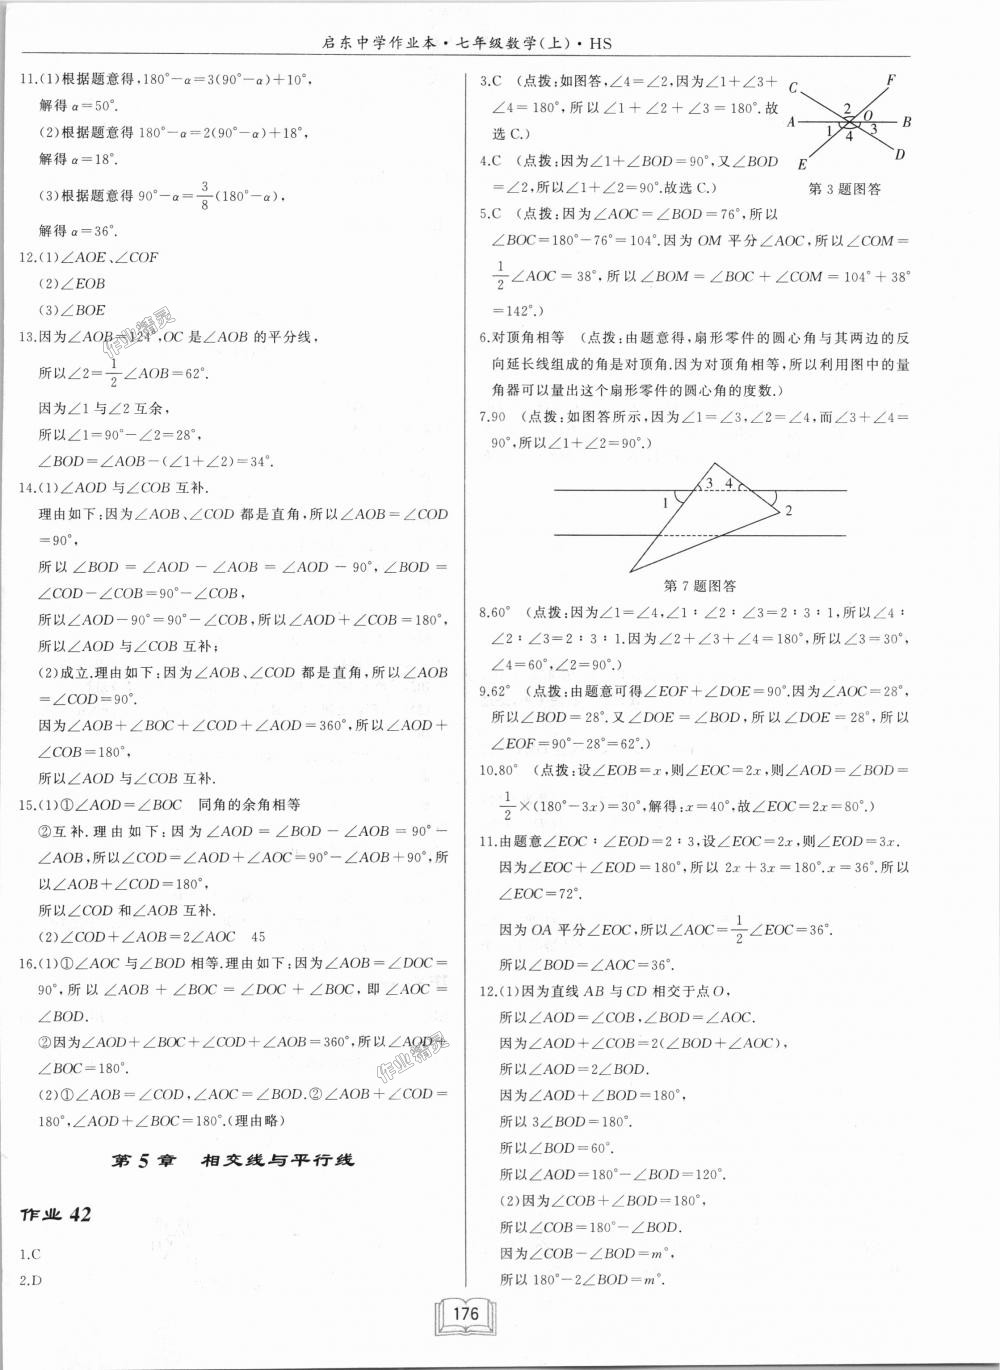 启东中学作业本·七年级数学(上)·HS
11.(1)根据题意得,180°－α＝3(90°－α)＋10°,
解得 α＝50°.
(2)根据题意得 180°－α＝2(90°－α)＋18°,
解得 α＝18°.
(3)根据题意得 90°－α＝3/8(180°－α),
解得 α＝36°.
12.(1)∠AOE、∠COF
(2)∠EOB
(3)∠BOE
13.因为∠AOB＝124°,OC 是∠AOB 的平分线,
所以∠2＝1/2∠AOB＝62°.
因为∠1 与∠2 互余,
所以∠1＝90°－∠2＝28°,
∠BOD＝∠AOB－(∠1＋∠2)＝34°.
14.(1)∠AOD 与∠COB 互补.
理由如下:因为∠AOB、∠COD 都是直角,所以∠AOB＝∠COD
＝90°,
所以∠BOD＝∠AOD－∠AOB＝∠AOD－90°,∠BOD＝
∠COD－∠COB＝90°－∠COB,
所以∠AOD－90°＝90°－∠COB,所以∠AOD＋∠COB＝180°,
所以∠AOD 与∠COB 互补;
(2)成立.理由如下:因为∠AOB、∠COD 都是直角,所以∠AOB
＝∠COD＝90°.
因为∠AOB＋∠BOC＋∠COD＋∠AOD＝360°,所以∠AOD＋
∠COB＝180°,
所以∠AOD 与∠COB 互补.
15.(1)①∠AOD＝∠BOC　同角的余角相等
②互补.理由如下:因为∠AOD＝∠BOD－∠AOB＝90°－
∠AOB,所以∠COD＝∠AOD＋∠AOC＝90°－∠AOB＋90°,所
以∠AOB＋∠COD＝180°,
所以∠COD 和∠AOB 互补.
(2)∠COD＋∠AOB＝2∠AOC　45
16.(1)①∠AOC 与∠BOD 相等.理由如下:因为∠AOB＝∠DOC＝
90°,所以∠AOB＋∠BOC＝∠DOC＋∠BOC,即∠AOC＝
∠BOD.
②因为∠AOD＋∠BOC＋∠COD＋∠AOB＝360°,所以∠AOD＋
∠BOC＝180°.
(2)①∠AOB＝∠COD,∠AOC＝∠BOD.②∠AOB＋∠COD＝
180°,∠AOD＋∠BOC＝180°.(理由略)
第 5 章　相交线与平行线
作业 42
1.C
2.D
3.C　(点拨:如图答,∠4＝∠2,因为∠1＋∠3＋
∠4＝180°,所以∠1＋∠2＋∠3＝180°.故
选 C.)
C
F
2
O
A
B
1
4
3
E
D
第 3 题图答
4.C　(点拨:因为∠1＋∠BOD＝90°,又∠BOD
＝∠2,所以∠1＋∠2＝90°.故选 C.)
5.C　(点拨:因为∠AOC＝∠BOD＝76°,所以
∠BOC＝180°－76°＝104°.因为 OM 平分∠AOC,所以∠COM＝
1/2∠AOC＝38°,所以∠BOM＝∠BOC＋∠COM＝104°＋38°
＝142°.)
6.对顶角相等　(点拨:由题意得,扇形零件的圆心角与其两边的反
向延长线组成的角是对顶角.因为对顶角相等,所以利用图中的量
角器可以量出这个扇形零件的圆心角的度数.)
7.90　(点拨:如图答所示,因为∠1＝∠3,∠2＝∠4,而∠3＋∠4＝
90°,所以∠1＋∠2＝90°.)
3 4
1
2
第 7 题图答
8.60°　(点拨:因为∠1＝∠4,∠1∶∠2∶∠3＝2∶3∶1,所以∠4∶
∠2∶∠3＝2∶3∶1.因为∠2＋∠3＋∠4＝180°,所以∠3＝30°,
∠4＝60°,∠2＝90°.)
9.62°　(点拨:由题意可得∠EOF＋∠DOE＝90°.因为∠AOC＝28°,
所以∠BOD＝28°.又∠DOE＝∠BOD,所以∠DOE＝28°,所以
∠EOF＝90°－28°＝62°.)
10.80°　(点拨:设∠EOB＝x,则∠EOC＝2x,则∠AOD＝∠BOD＝
1/2×(180°－3x)＝30°,解得:x＝40°,故∠EOC＝2x＝80°.)
11.由题意∠EOC∶∠EOD＝2∶3,设∠EOC＝2x,则∠EOD＝3x.
因为∠EOC＋∠EOD＝180°,所以 2x＋3x＝180°.x＝36°.所以
∠EOC＝72°.
因为 OA 平分∠EOC,所以∠AOC＝1/2∠EOC＝36°.
所以∠BOD＝∠AOC＝36°.
12.(1)因为直线 AB 与 CD 相交于点 O,
所以∠AOD＝∠COB,∠BOD＝∠AOC.
因为∠AOD＋∠COB＝2(∠BOD＋∠AOC),
所以∠AOD＝2∠BOD.
因为∠AOD＋∠BOD＝180°,
所以 3∠BOD＝180°.
所以∠BOD＝60°.
所以∠AOD＝180°－∠BOD＝120°.
(2)因为∠COB＋∠BOD＝180°,
所以∠COB＝180°－∠BOD.
因为∠COB－∠BOD＝m°,
所以 180°－2∠BOD＝m°.
作业精灵
作业精灵
176